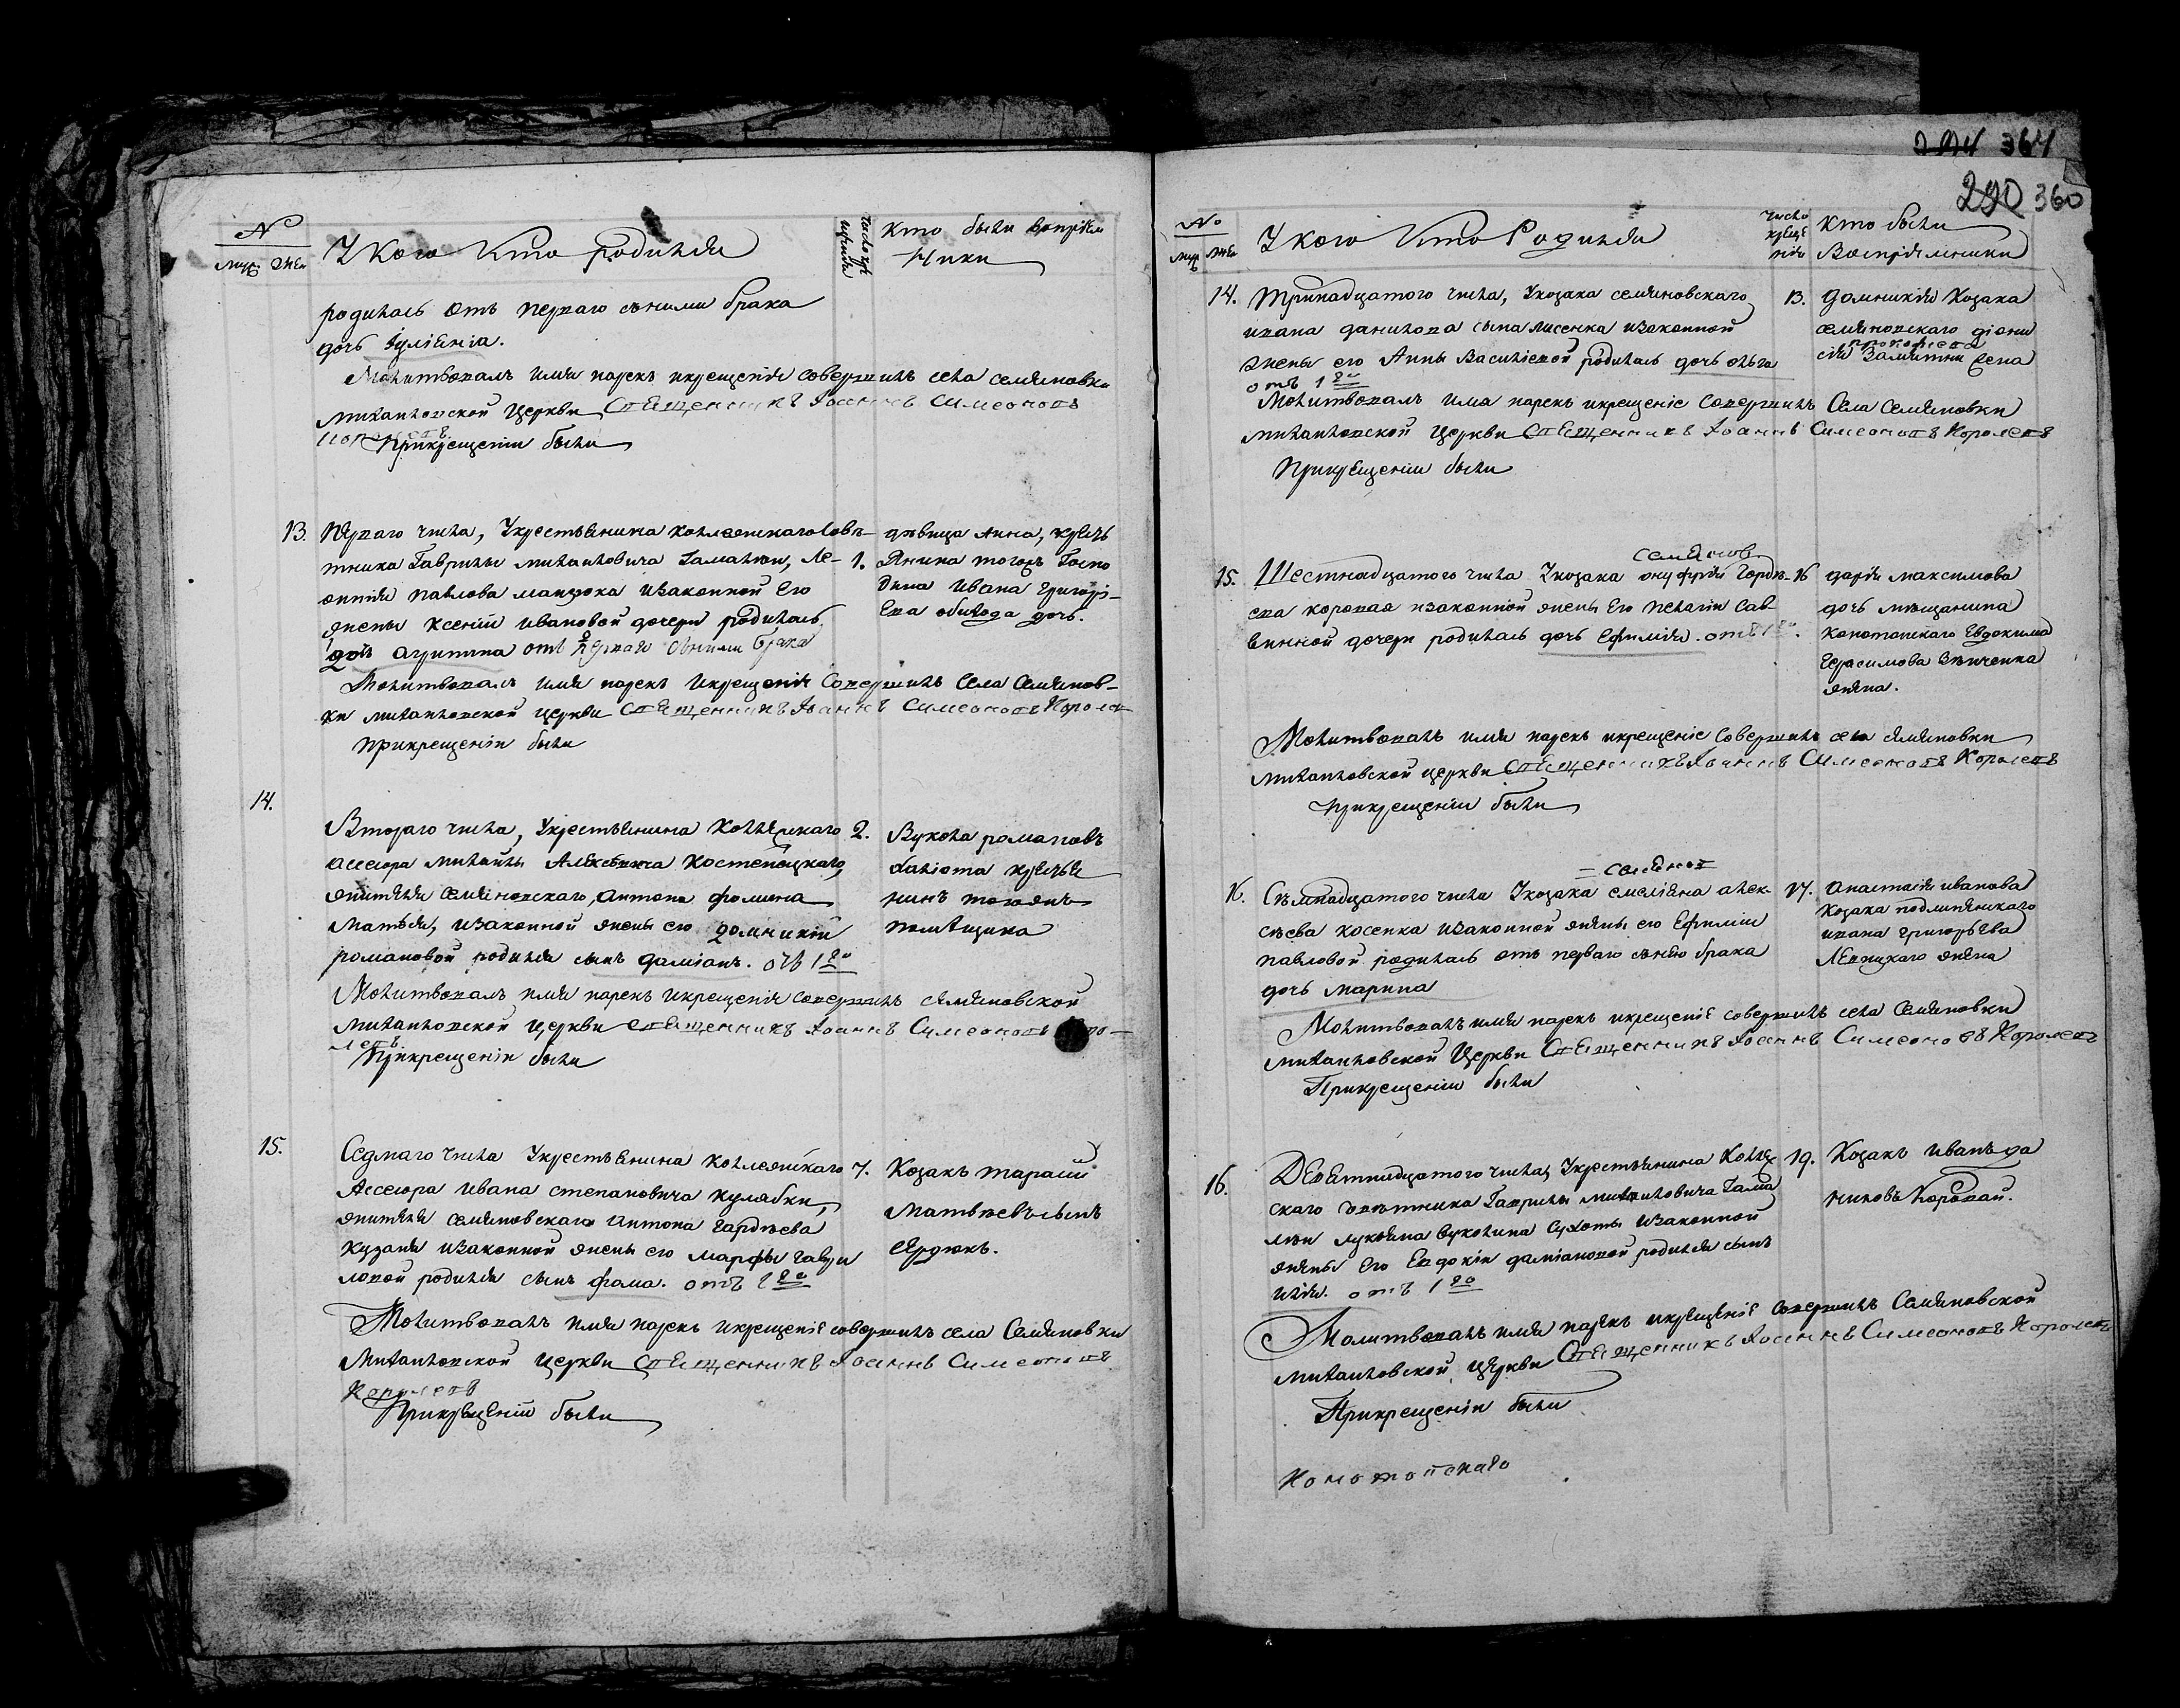 364
290 360
№
муж. жен.
У Кого Кто родился
число крещения
Кто были воспріем
ники
родилась отъ перваго сними брака
дочь Іуліанія.
Молитвовалъ имя нарекъ икрещеніе совершилъ села семяновки
михаиловской Церкви Священникъ Іоаннъ Симеоновъ
Королевъ
Прикрещеніи были
13. Перваго числа, Укрестьянина коллежскаго Совѣ-
тника Гаврилы михаиловича Гамалѣи, Ле- 1.
онтия павлова изаконной Его
жены ксеніи ивановой дочери родилась
дочь агрипина отъ перваго сними брака
дѣвица Анна,
тогожъ Госпо
дина Ивана Григорі-
ева дочь.
Молитвовалъ имя нарекъ икрещеніе Совершилъ Села Семянов-
ки михаиловской церкви Священникъ Іоаннъ Симеоновъ Королев
прикрещеніи были
14.
Втораго числа, Укрестьянина Коллежскаго 2.
асессора михаила Алексѣевича Костенецкаго,
жителя Семяновскаго, антона фомина
изаконной жены его домникіи
романовой родился сынъ даміанъ. отъ 1го
Вукола романовъ
нинъ тогожъ
помѣщика
Молитвовалъ имя нарекъ икрещеніе совершилъ семяновской
михаиловской Церкви священникъ Іоаннъ Симеоновъ Коро-
левъ.
Прикрещеніи были
15.
Седмаго числа Укрестьянина Коллежскаго 7.
Ассесора ивана степановича кулябки,
жителя семяновскаго антона гордѣева
изаконной жены его марфы гаври
ловой родился сынъ фома. отъ 1го
Козакъ тарасій
матвѣевъ сынъ
сердюкъ.
Молитвовалъ имя нарекъ икрещеніе совершилъ села Семяновки
Михаиловской Церкви Священникъ Іоаннъ Симеоновъ
Королевъ
Прикрещеніи были
№
муж жен
У кого Кто Родился
число
креще
нія
Кто были
Воспріемники
14. Тринадцатого числа, Укозака семяновскаго 13.
ивана данилова сына лисенка изаконной
жены его Анны Василіевой родилась дочь ольга
отъ 1го
домникія Козака
семяновскаго діони
прокофіева
сія жена
Молитвовалъ имя нарекъ икрещеніе совершилъ Села Семяновки
михаиловской Церкви Священникъ Іоаннъ Симеоновъ Королевъ
Прикрещеніи были
семянов
15. Шестнадцатого числа Укозака онуфрія Гордѣ- 16
ева коровая изаконной жены Его пелагіи Сав-
винной дочери родилась дочь Ефимія. отъ 1го.
дарія максимова
дочь мѣщанина
конотопскаго Евдокима
Герасимова
жена.
Молитвовалъ имя нарекъ икрещеніе Совершилъ села семяновки
михаиловской церкви Священникъ Іоаннъ Симеоновъ Королевъ
прикрещеніи были
семянов
16. Семнадцатого числа Укозака емеліяна алек- 17.
сѣева косенка изаконной жены его Ефиміи
павловой родилась отъ перваго снею брака
дочь марина
анастасія иванова
Козака подлипенскаго
ивана григорьева
жена
Молитвовалъ имя нарекъ икрещеніе совершилъ села Семяновки
михаиловской Церкви Священникъ Іоаннъ Симеоновъ Королевъ
Прикрещеніи были
16.
Девѣтнадцатого числа, Укрестьянина Коллеж 19.
скаго совѣтника Гаврилы михаиловича Гама
лѣи лукьяна вуколина сухоты изаконной
жены Его Евдокіи даміановой родился сынъ
илія. отъ 1го
Козакъ иванъ да
ниловъ Коровай.
Молитвовалъ имя нарекъ икрещеніе совершилъ Семяновской
михаиловской церкви Священникъ Іоаннъ Симеоновъ Королевъ
Прикрещеніи были
Конотопскаго